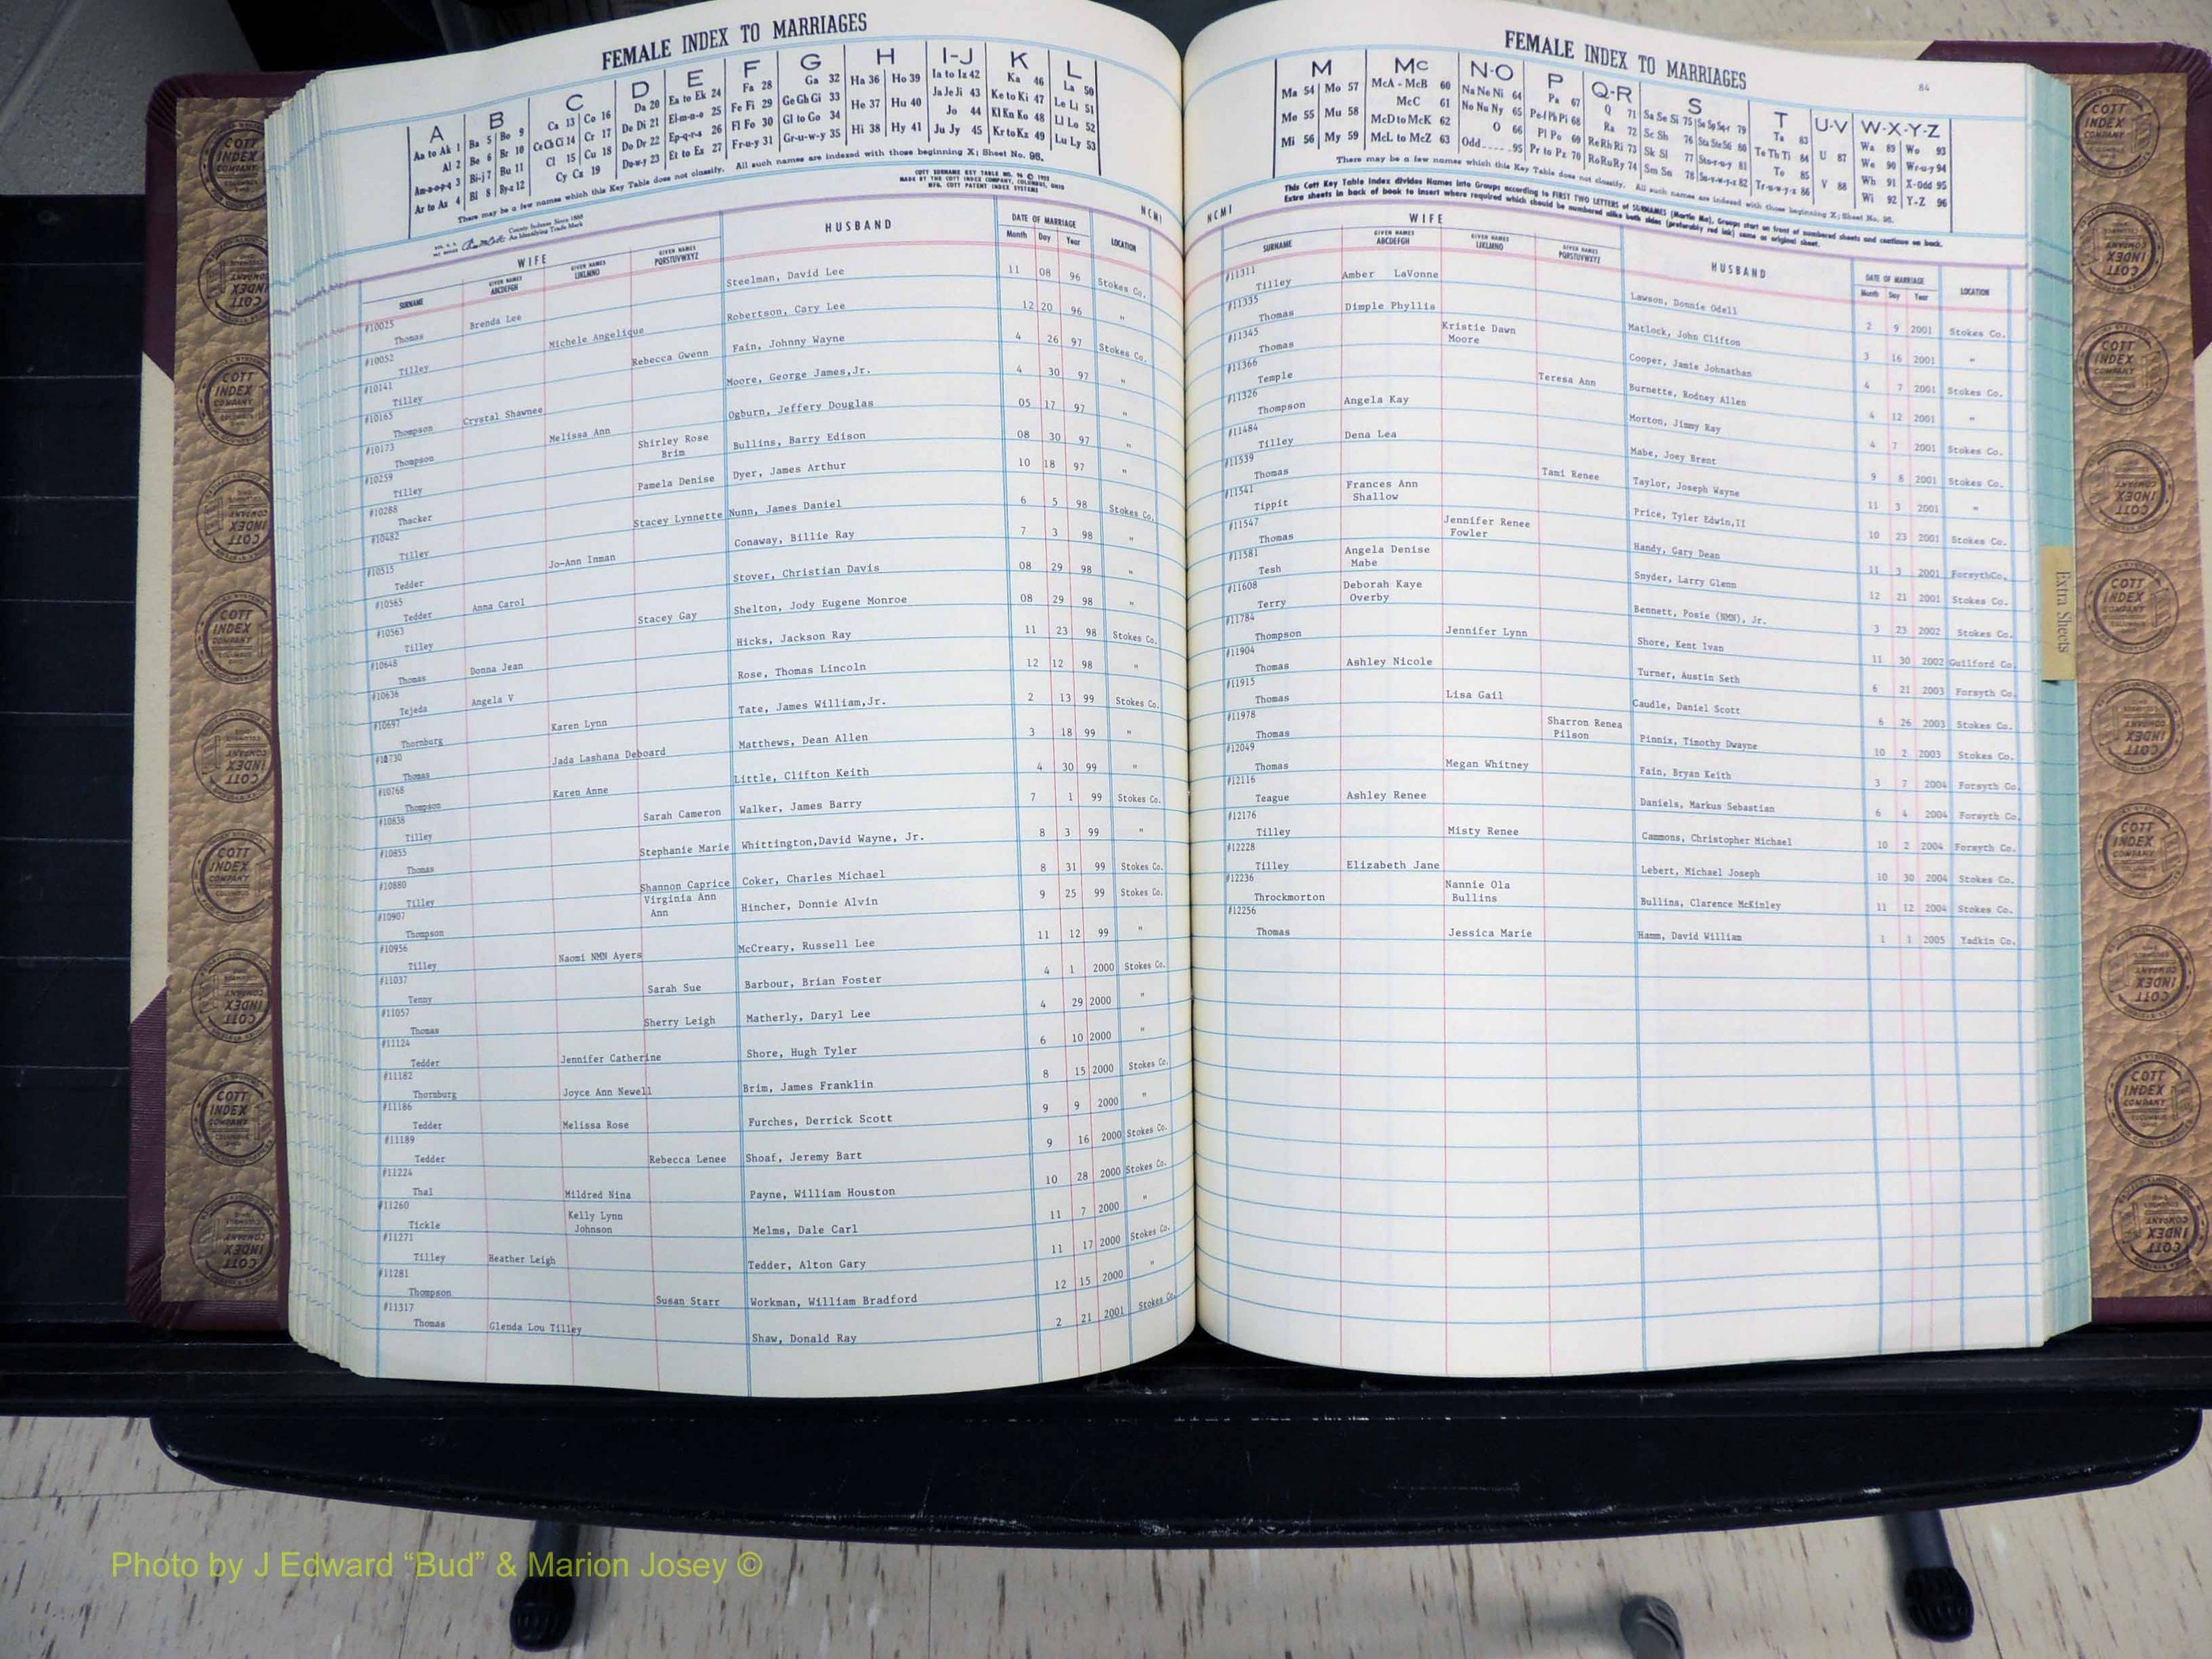 FEMALE INDEX TO MARRIAGES
A B C D E F G H I-J K L
Aa to Ak 1 Ba 5 Bo 9 Ca 13 Co 16 Da 20 Ea to Ek 24 Fa 28 Ga 32 Ha 36 Ho 39 Ia to Iz 42 Ka 46 La 50
Al 2 Be 6 Br 10 Ce Ch Ci 14 Cr 17 De Di 21 El-m-n-o 25 Fe Fi 29 Ge Gh Gi 33 He 37 Hu 40 Ja Je Ji 43 Ke to Ki 47 Le Li 51
Am-n-o-p-q 3 Bi-j 7 Bu 11 Cl 15 Cu 18 Do Dr 22 Ep-q-r-s 26 Fl Fo 30 Gl to Go 34 Hi 38 Hy 41 Jo 44 Kl Kn Ko 48 Ll Lo 52
Ar to Az 4 Bl 8 By-z 12 Cy Cz 19 Du-w-y 23 Et to Ez 27 Fr-u-y 31 Gr-u-w-y 35 Ju Jy 45 Kr to Kz 49 Lu Ly 53
There may be a few names which this Key Table does not classify. All such names are indexed with those beginning X; Sheet No. 95.
County Indexes Since 1888
An Identifying Trade Mark
NCMI
WIFE HUSBAND DATE OF MARRIAGE LOCATION
SURNAME GIVEN NAMES ABCDEFGH GIVEN NAMES IJKLMNO GIVEN NAMES PQRSTUVWXYZ Month Day Year
#10025 Thomas Brenda Lee Steelman, David Lee 11 08 96 Stokes Co.
#10052 Tilley Michele Angelique Robertson, Cary Lee 12 20 96 "
#10141 Tilley Rebecca Gwenn Fain, Johnny Wayne 4 26 97 Stokes Co.
#10165 Thompson Crystal Shawnee Moore, George James,Jr. 4 30 97 "
#10173 Thompson Melissa Ann Ogburn, Jeffery Douglas 05 17 97 "
#10259 Tilley Shirley Rose Brim Bullins, Barry Edison 08 30 97 "
#10288 Thacker Pamela Denise Dyer, James Arthur 10 18 97 "
#10482 Tilley Stacey Lynnette Nunn, James Daniel 6 5 98 Stokes Co.
#10515 Tedder Jo-Ann Inman Conaway, Billie Ray 7 3 98 "
#10565 Tedder Anna Carol Stover, Christian Davis 08 29 98 "
#10563 Tilley Stacey Gay Shelton, Jody Eugene Monroe 08 29 98 "
#10648 Thomas Donna Jean Hicks, Jackson Ray 11 23 98 Stokes Co.
#10636 Tejeda Angela V Rose, Thomas Lincoln 12 12 98 "
#10697 Thornburg Karen Lynn Tate, James William,Jr. 2 13 99 Stokes Co.
#10730 Thomas Jada Lashana Deboard Matthews, Dean Allen 3 18 99 "
#10768 Thompson Karen Anne Little, Clifton Keith 4 30 99 "
#10838 Tilley Sarah Cameron Walker, James Barry 7 1 99 Stokes Co.
#10855 Thomas Stephanie Marie Whittington,David Wayne, Jr. 8 3 99 "
#10880 Tilley Shannon Caprice Coker, Charles Michael 8 31 99 Stokes Co.
#10907 Thompson Virginia Ann Ann Hincher, Donnie Alvin 9 25 99 Stokes Co.
#10956 Tilley Naomi NMN Ayers McCreary, Russell Lee 11 12 99 "
#11037 Tenny Sarah Sue Barbour, Brian Foster 4 1 2000 Stokes Co.
#11057 Thomas Sherry Leigh Matherly, Daryl Lee 4 29 2000 "
#11124 Tedder Jennifer Catherine Shore, Hugh Tyler 6 10 2000 "
#11182 Thornburg Joyce Ann Newell Brim, James Franklin 8 15 2000 Stokes Co.
#11186 Tedder Melissa Rose Furches, Derrick Scott 9 9 2000 "
#11189 Tedder Rebecca Lenee Shoaf, Jeremy Bart 9 16 2000 Stokes Co.
#11224 Thal Mildred Nina Payne, William Houston 10 28 2000 Stokes Co.
#11260 Tickle Kelly Lynn Johnson Melms, Dale Carl 11 7 2000 "
#11271 Tilley Heather Leigh Tedder, Alton Gary 11 17 2000 Stokes Co.
#11281 Thompson Susan Starr Workman, William Bradford 12 15 2000 "
#11317 Thomas Glenda Lou Tilley Shaw, Donald Ray 2 21 2001 Stokes Co.
FEMALE INDEX TO MARRIAGES
84
M Mc N-O P Q-R S T U-V W-X-Y-Z
Ma 54 Mo 57 McA - McB 60 Na Ne Ni 64 Pa 67 Q 71 Sa Se Si 75 Ta 83 U 87 Wa 89 Wo 93
Me 55 Mu 58 McC 61 No Nu Ny 65 Pe-f Ph Pi 68 Ra 72 Sc Sh 76 Te Th Ti 84 V 88 We 90 Wr-u-y 94
Mi 56 My 59 McD to McK 62 O 66 Pl Po 69 Re Rh Ri 73 Sk Sl 77 To 85 Wh 91 X-Odd 95
McL to McZ 63 Odd 95 Pr to Pz 70 Ro Ru Ry 74 Sm Sn 78 Tr-u-w-y-z 86 Wi 92 Y-Z 96
There may be a few names which this Key Table does not classify. All such names are indexed with those beginning X; Sheet No. 95.
This Cott Key Table Index divides Names into Groups according to FIRST TWO LETTERS of SURNAMES (Martin Ma), Groups start on front of numbered sheets and continue on back.
Extra sheets in back of book to insert where required which should be numbered alike both sides (preferably red ink) same as original sheet.
NCMI
WIFE HUSBAND DATE OF MARRIAGE LOCATION
SURNAME GIVEN NAMES ABCDEFGH GIVEN NAMES IJKLMNO GIVEN NAMES PQRSTUVWXYZ Month Day Year
#11311 Tilley Amber LaVonne Lawson, Donnie Odell 2 9 2001 Stokes Co.
#11335 Thomas Dimple Phyllis Matlock, John Clifton 3 16 2001 "
#11345 Thomas Kristie Dawn Moore Cooper, Jamie Johnathan 4 7 2001 Stokes Co.
#11366 Temple Teresa Ann Burnette, Rodney Allen 4 12 2001 "
#11326 Thompson Angela Kay Morton, Jimmy Ray 4 7 2001 Stokes Co.
#11484 Tilley Dena Lea Mabe, Joey Brent 9 8 2001 Stokes Co.
#11539 Thomas Tami Renee Taylor, Joseph Wayne 11 3 2001 "
#11541 Tippit Frances Ann Shallow Price, Tyler Edwin,II 10 23 2001 Stokes Co.
#11547 Thomas Jennifer Renee Fowler Handy, Gary Dean 11 3 2001 ForsythCo.
#11581 Tesh Angela Denise Mabe Snyder, Larry Glenn 12 21 2001 Stokes Co.
#11608 Terry Deborah Kaye Overby Bennett, Posie (NMN), Jr. 3 23 2002 Stokes Co.
#11784 Thompson Jennifer Lynn Shore, Kent Ivan 11 30 2002 Guilford Co.
#11904 Thomas Ashley Nicole Turner, Austin Seth 6 21 2003 Forsyth Co.
#11915 Thomas Lisa Gail Caudle, Daniel Scott 6 26 2003 Stokes Co.
#11978 Thomas Sharron Renea Pilson Pinnix, Timothy Dwayne 10 2 2003 Stokes Co.
#12049 Thomas Megan Whitney Fain, Bryan Keith 3 7 2004 Forsyth Co.
#12116 Teague Ashley Renee Daniels, Markus Sebastian 6 4 2004 Forsyth Co.
#12176 Tilley Misty Renee Cammons, Christopher Michael 10 2 2004 Forsyth Co.
#12228 Tilley Elizabeth Jane Lebert, Michael Joseph 10 30 2004 Stokes Co.
#12236 Throckmorton Nannie Ola Bullins Bullins, Clarence McKinley 11 12 2004 Stokes Co.
#12256 Thomas Jessica Marie Hamm, David William 1 1 2005 Yadkin Co.
Extra Sheets
COTT INDEX COMPANY
Photo by J Edward “Bud” & Marion Josey ©